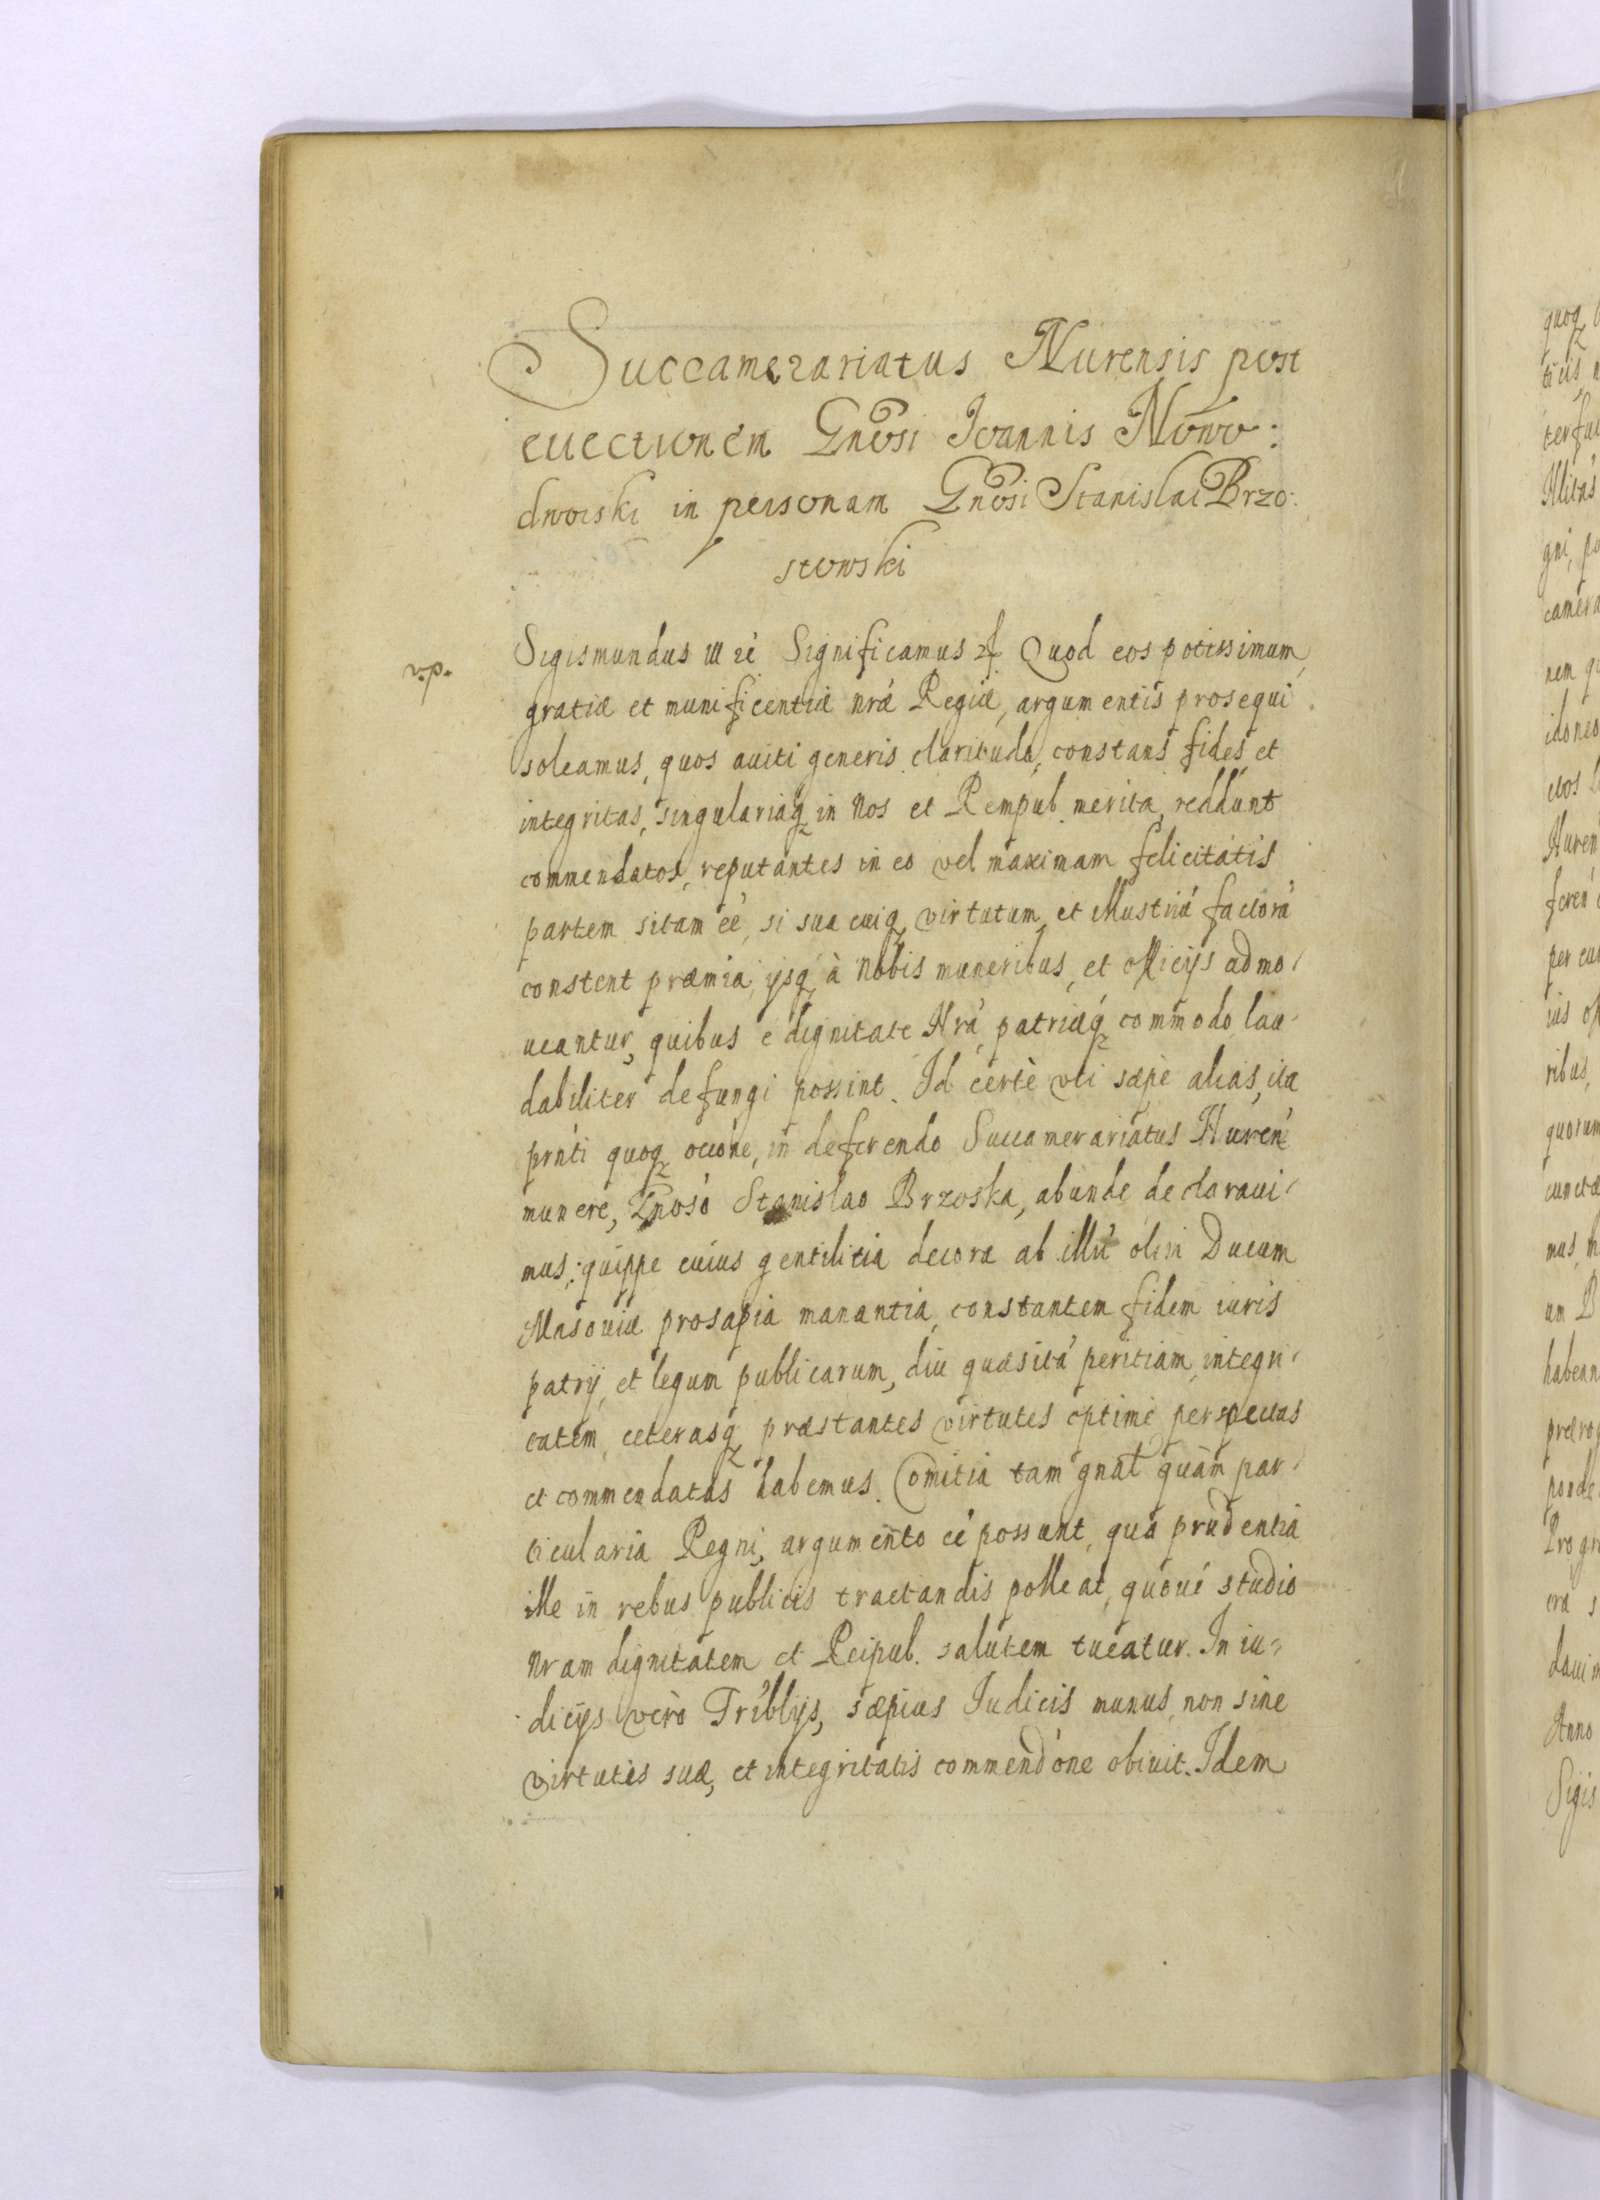 Succamerariatus Nurensis post
euectionem Gnosi Ioannis Nowo:
dworski in personam Gnosi Stanislai Brzo:
stowski
v.p.
Sigismundus III Significamus Quod eos potissimum
gratiæ et munificentiæ nrá Regiæ, argumentis prosequi
soleamus, quos auiti generis claritudo, constans fides, et
integritas, singulariaq in Nos et Rempub. merita, reddunt
commendatos, reputantes in eo vel maximam felicitatis
partem sitam eé, si sua cuiq virtutum, et illustriá factorá
constent præmia, ijsq à Nobis muneribus, et officijs admo/
ueantur, quibus é dignitate Nrá, patriæq commodo lau/
dabiliter defungi possint. Id certè vti sæpè alias, ita
prnti quoq occóne, in deferendo Succamerariatus Nuren
munere, Gnosó Stanislao Brzoska, abunde declaraui/
mus: quippe cuius gentilitia decora ab illri olim Ducum
Masouiæ prosapia manantia, constantem fidem iuris
patrij, et legum publicarum, diu quæsitá peritiam, integri/
tatem, ceterasq præstantes virtutes optimè perspectas
et commendatas habemus. Comitia tam gnal quàm par/
ticularia Regni, argumento eé possunt, quá prudentia
ille in rebus publicis tractandis polleat, quoué studio
Nram dignitatem et Reipub. salutem tueatur. In iu=
dicijs verò Triblijs, sæpius Iudicis munus, non sine
virtutis suæ, et integritatis commendóne obiuit. Idem
quoq
terfue
gni, po
camera
nem qu
idoneo
Nuren
per eu
ius of
ribus,
quorum
cunctæ
mus, m
um B
habean
prærog
Pro gr
Anno
Sigis